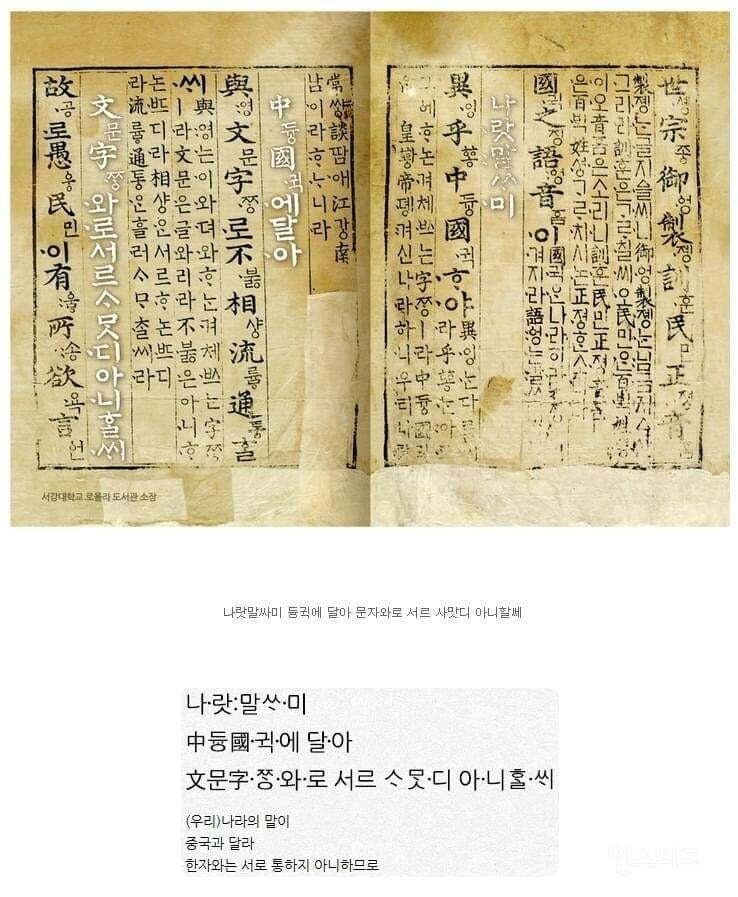 世솅宗종御엉製졩訓훈民민正졍音
製졩는글지슬씨니御엉製졩는님금지
그리라訓훈은ᄀᆞᄅᆞ칠씨오民민은百
이오音흠은소리니訓훈民민正졍音
은百姓셩ᄀᆞᄅᆞ치시논正졍ᄒᆞᆫ소
國귁之징語엉音흠이
國귁은나라히라
겨지라語엉는말
나랏말ᄊᆞ미
異잉乎ᅘᅩᆼ中듕國귁ᄒᆞ야
異잉는다를
라乎ᅘᅩᆼ는아
그ᅌᅦᄒᆞ논겨체ᄡᅳ는字ᄍᆞᆼㅣ라中듕國귁
皇황帝뎽겨신나라히니우리나랏
常썅談땀애江강南
남이라ᄒᆞᄂᆞ니라
中듕國귁에달아
與영文문字ᄍᆞᆼ로不붏相샹流륳通통ᄒᆞᆯ
씨
與영는이와뎌와ᄒᆞ논겨체ᄡᅳ는字ᄍᆞᆼ
ㅣ라文문은글와리라不붏은아니ᄒᆞ
논ᄠᅳ디라相샹은서르ᄒᆞ논ᄠᅳ디
라流륳通통은흘러ᄉᆞᄆᆞᄎᆞᆯ씨라
文문字ᄍᆞᆼ와로서르ᄉᆞᄆᆞᆺ디아니ᄒᆞᆯᄊᆡ
故공로愚웅民민이有ᅌᅮᇢ所송欲욕言언
서강대학교 로욜라 도서관 소장
나랏말싸미 듕귁에 달아 문자와로 서르 사맛디 아니할쎄
나·랏:말ᄊᆞ·미
中듕國·귁·에 달·아
文문字·ᄍᆞᆼ·와·로 서르 ᄉᆞᄆᆞᆺ·디 아·니ᄒᆞᆯ·ᄊᆡ
(우리)나라의 말이
중국과 달라
한자와는 서로 통하지 아니하므로
인스티즈